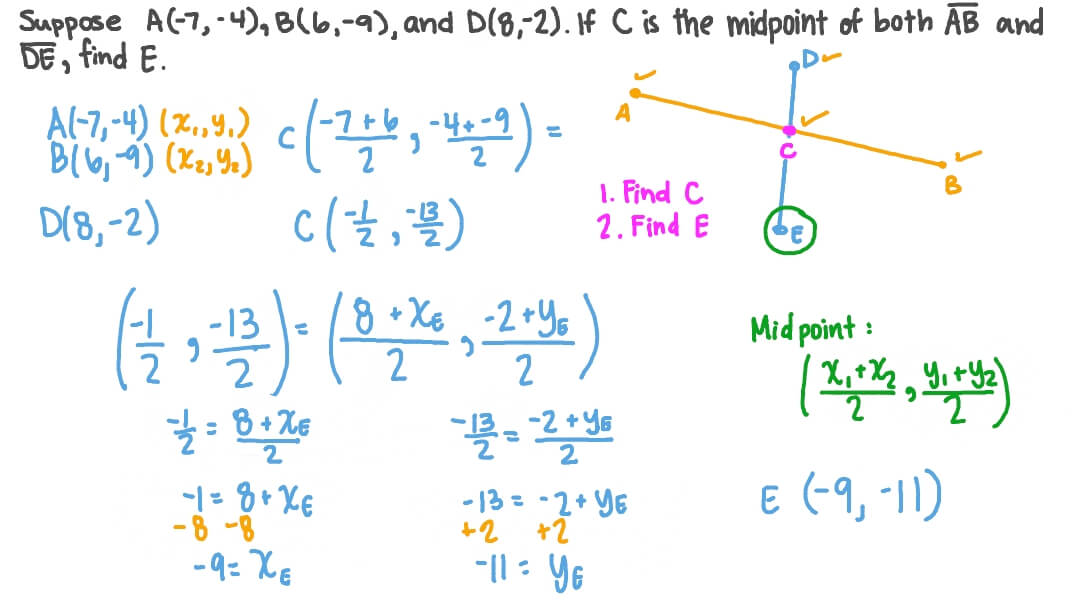 Suppose A(-7,-4), B(6,-9), and D(8,-2). If C is the midpoint of both A̅B̅ and
D̅E̅, find E.
A(-7,-4) (x₁,y₁)
B(6,-9) (x₂,y₂)
C((-7+6)/2, (-4+-9)/2) =
D(8,-2)
C(-1/2, -13/2)
D
A
C
B
E
1. Find C
2. Find E
(-1/2, -13/2) = ((8+x_E)/2, (-2+y_E)/2)
Midpoint:
((x₁+x₂)/2, (y₁+y₂)/2)
-1/2 = (8+x_E)/2
-13/2 = (-2+y_E)/2
-1 = 8+x_E
-13 = -2+y_E
-8 -8
+2 +2
-9 = x_E
-11 = y_E
E (-9, -11)